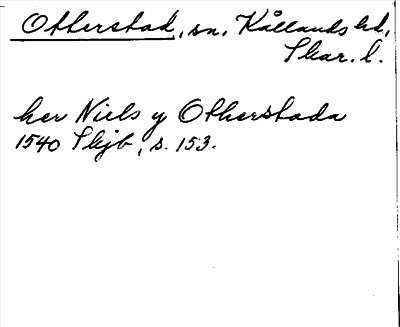 Otterstad, sn, Kållands hd,
Skar. l.
her Niels y Otherstada
1540 Skjb, s. 153.